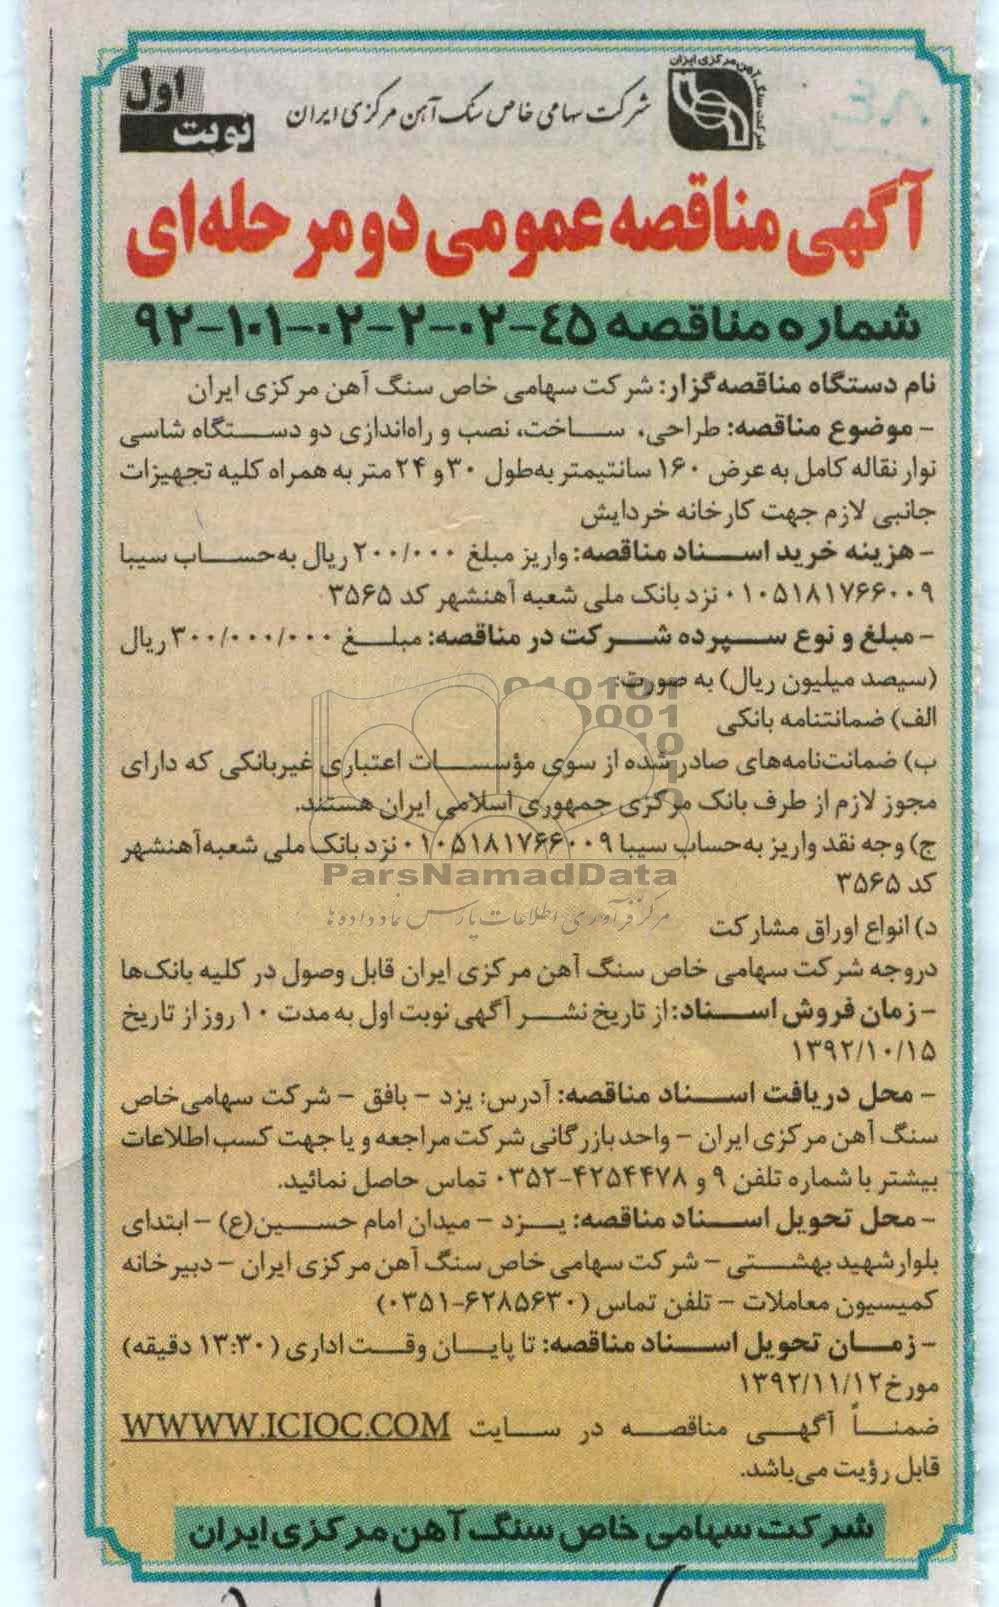 شرکت سنگ آهن مرکزی ایران
شرکت سهامی خاص سنگ آهن مرکزی ایران
نوبت اول
آگهی مناقصه عمومی دو مرحله‌ای
شماره مناقصه ۴۵-۰۲-۲-۰۲-۱۰۱-۹۲
نام دستگاه مناقصه‌گزار: شرکت سهامی خاص سنگ آهن مرکزی ایران
- موضوع مناقصه: طراحی، ساخت، نصب و راه‌اندازی دو دستگاه شاسی
نوار نقاله کامل به عرض ۱۶۰ سانتیمتر به‌طول ۳۰ و ۲۴ متر به همراه کلیه تجهیزات
جانبی لازم جهت کارخانه خردایش
- هزینه خرید اسناد مناقصه: واریز مبلغ ۲۰۰/۰۰۰ ریال به‌حساب سیبا
۰۱۰۵۱۸۱۷۶۶۰۰۹ نزد بانک ملی شعبه آهنشهر کد ۳۵۶۵
- مبلغ و نوع سپرده شرکت در مناقصه: مبلغ ۳۰۰/۰۰۰/۰۰۰ ریال
(سیصد میلیون ریال) به صورت:
الف) ضمانتنامه بانکی
ب) ضمانت‌نامه‌های صادر شده از سوی مؤسسات اعتباری غیربانکی که دارای
مجوز لازم از طرف بانک مرکزی جمهوری اسلامی ایران هستند.
ج) وجه نقد واریز به‌حساب سیبا ۰۱۰۵۱۸۱۷۶۶۰۰۹ نزد بانک ملی شعبه آهنشهر
کد ۳۵۶۵
د) انواع اوراق مشارکت
دروجه شرکت سهامی خاص سنگ آهن مرکزی ایران قابل وصول در کلیه بانک‌ها
- زمان فروش اسناد: از تاریخ نشر آگهی نوبت اول به مدت ۱۰ روز از تاریخ
۱۳۹۲/۱۰/۱۵
- محل دریافت اسناد مناقصه: آدرس: یزد - بافق - شرکت سهامی خاص
سنگ آهن مرکزی ایران - واحد بازرگانی شرکت مراجعه و یا جهت کسب اطلاعات
بیشتر با شماره تلفن ۹ و ۴۲۵۴۴۷۸-۰۳۵۲ تماس حاصل نمائید.
- محل تحویل اسناد مناقصه: یزد - میدان امام حسین(ع) - ابتدای
بلوار شهید بهشتی - شرکت سهامی خاص سنگ آهن مرکزی ایران - دبیرخانه
کمیسیون معاملات - تلفن تماس (۶۲۸۵۶۳۰-۰۳۵۱)
- زمان تحویل اسناد مناقصه: تا پایان وقت اداری (۱۳:۳۰ دقیقه)
مورخ ۱۳۹۲/۱۱/۱۲
ضمناً آگهی مناقصه در سایت WWWW.ICIOC.COM
قابل رؤیت می‌باشد.
شرکت سهامی خاص سنگ آهن مرکزی ایران
ParsNamadData
مرکز فرآوری اطلاعات پارس نماد داده ها